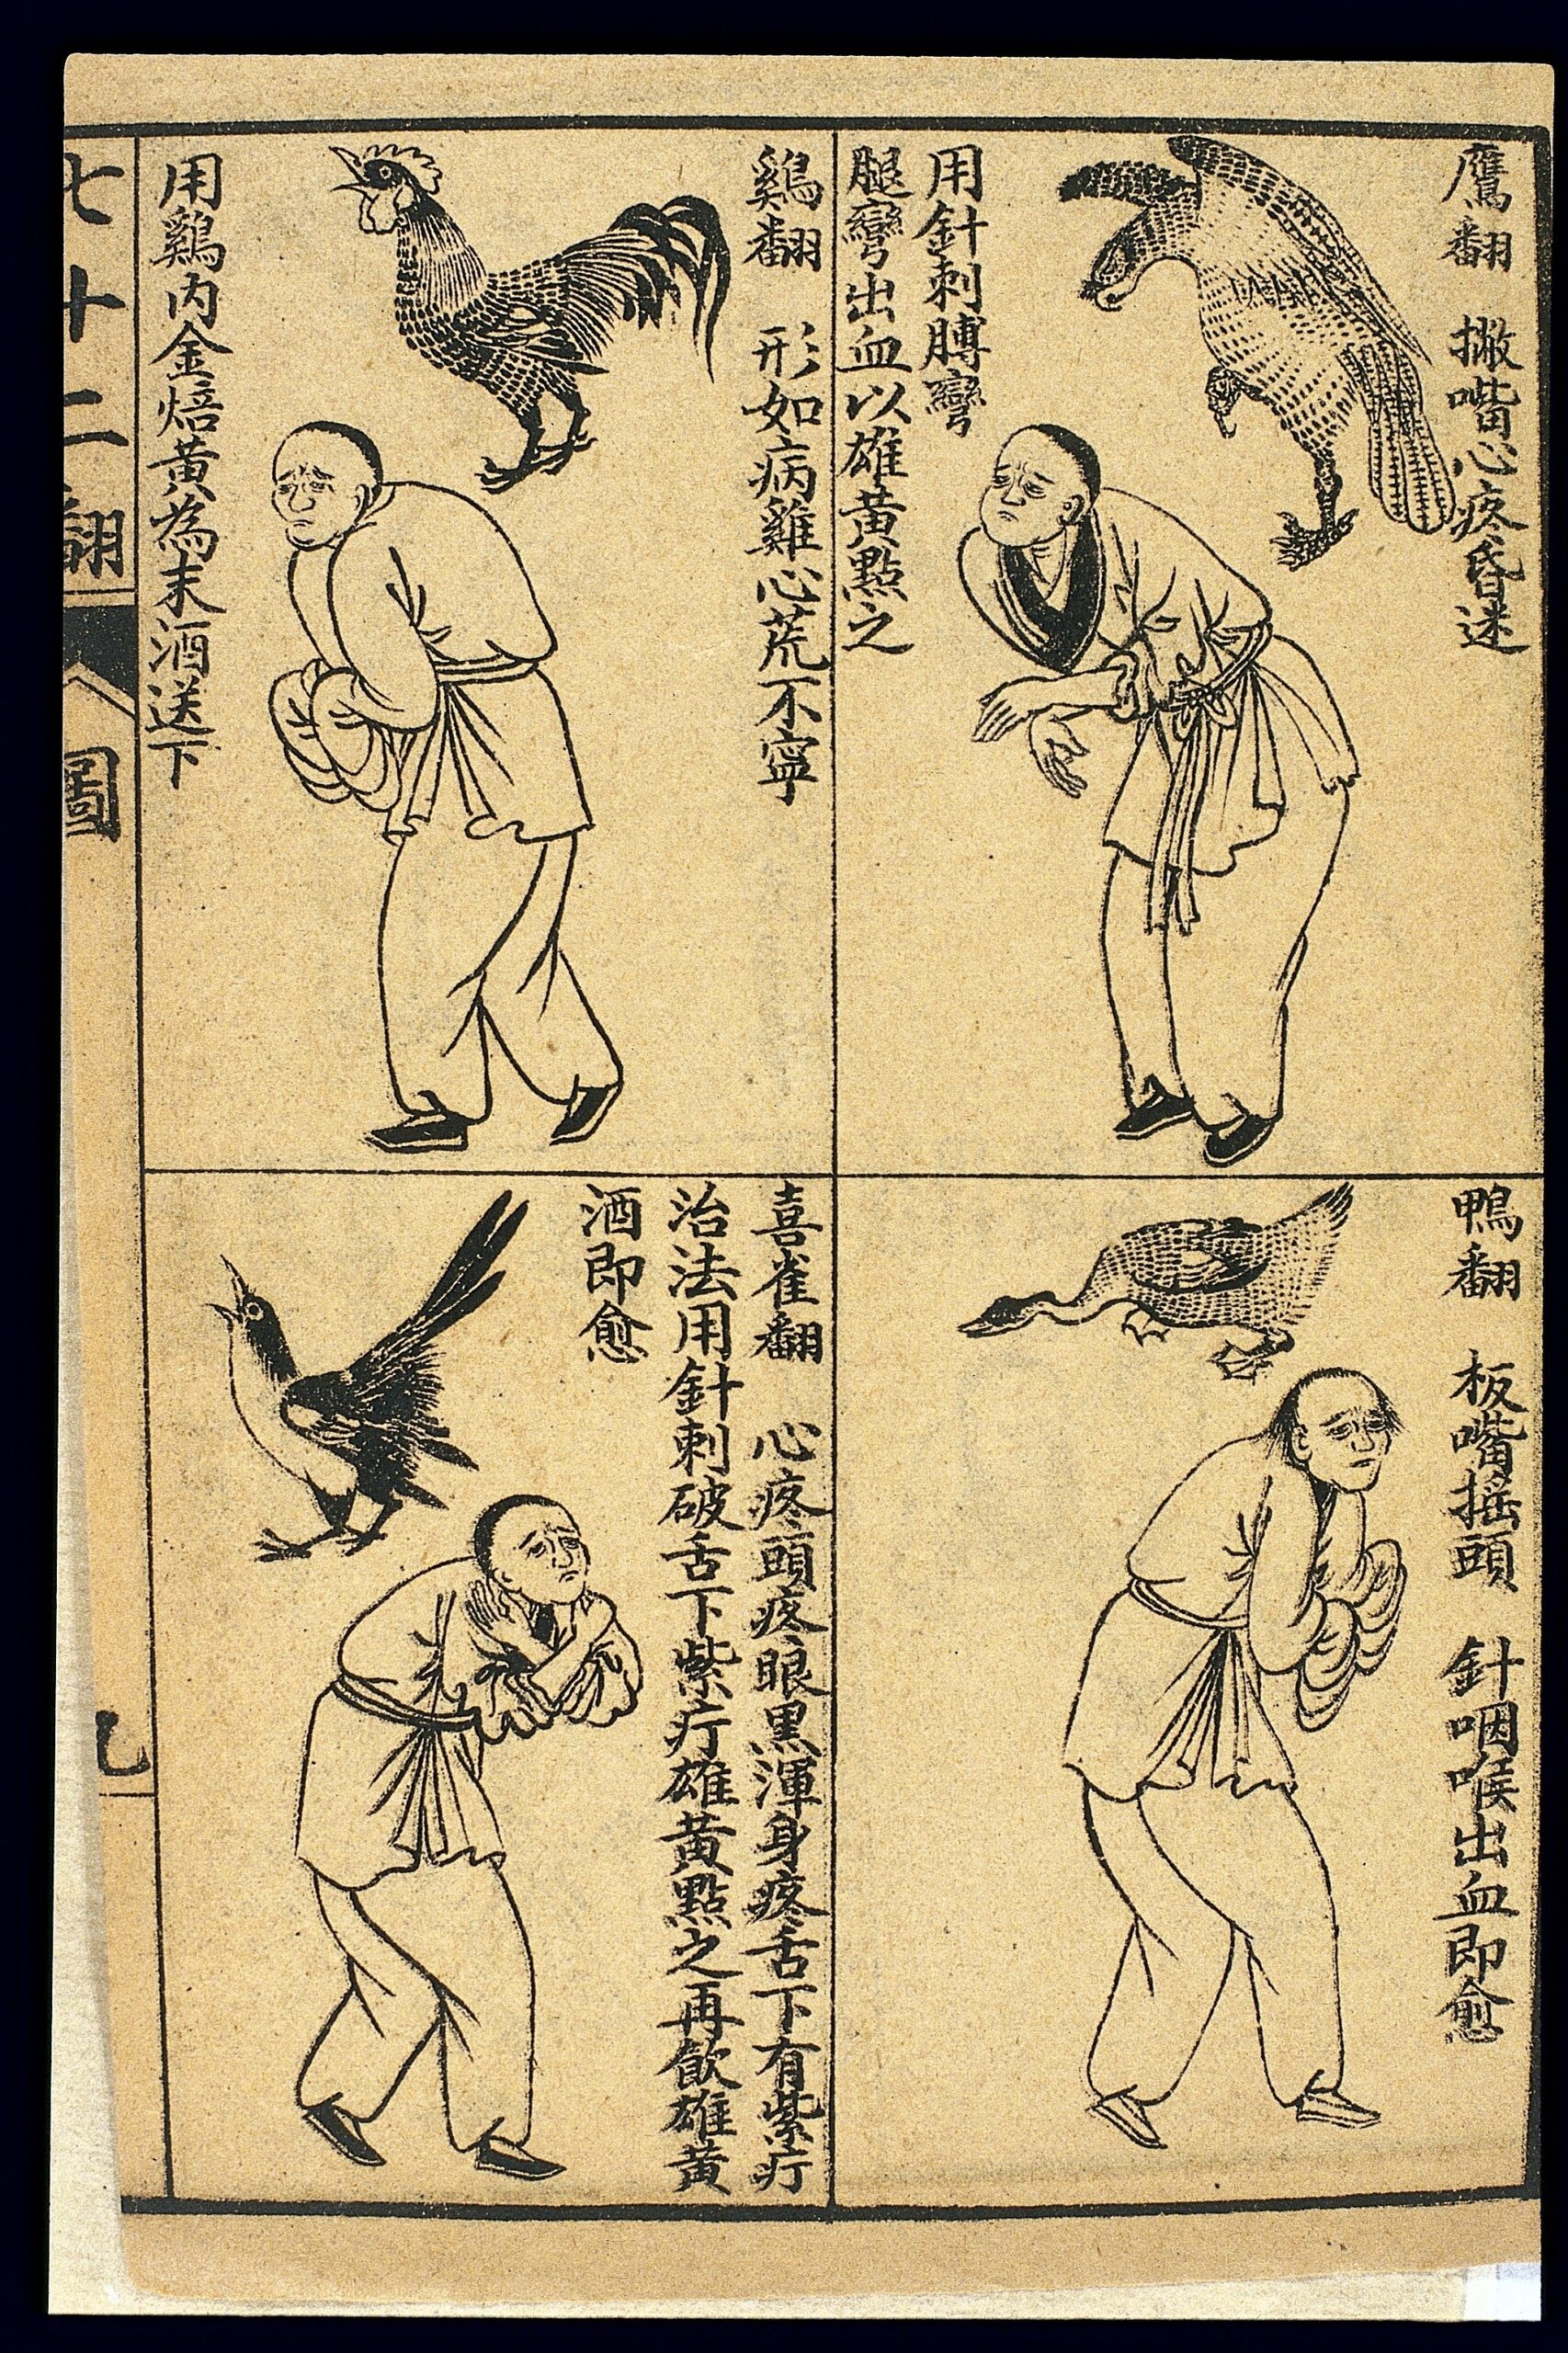 鷹翻　撇嘴心疼昏迷
用針刺膊彎
腿彎出血以雄黃點之
鷄翻　形如病雞心荒不寧
用鷄内金焙黃為末酒送下
鴨翻　板嘴搖頭　針咽喉出血即愈
喜雀翻　心疼頭疼眼黑渾身疼舌下有紫疔
治法用針刺破舌下紫疔雄黃點之再飲雄黃
酒即愈
七十二翻　圖
九